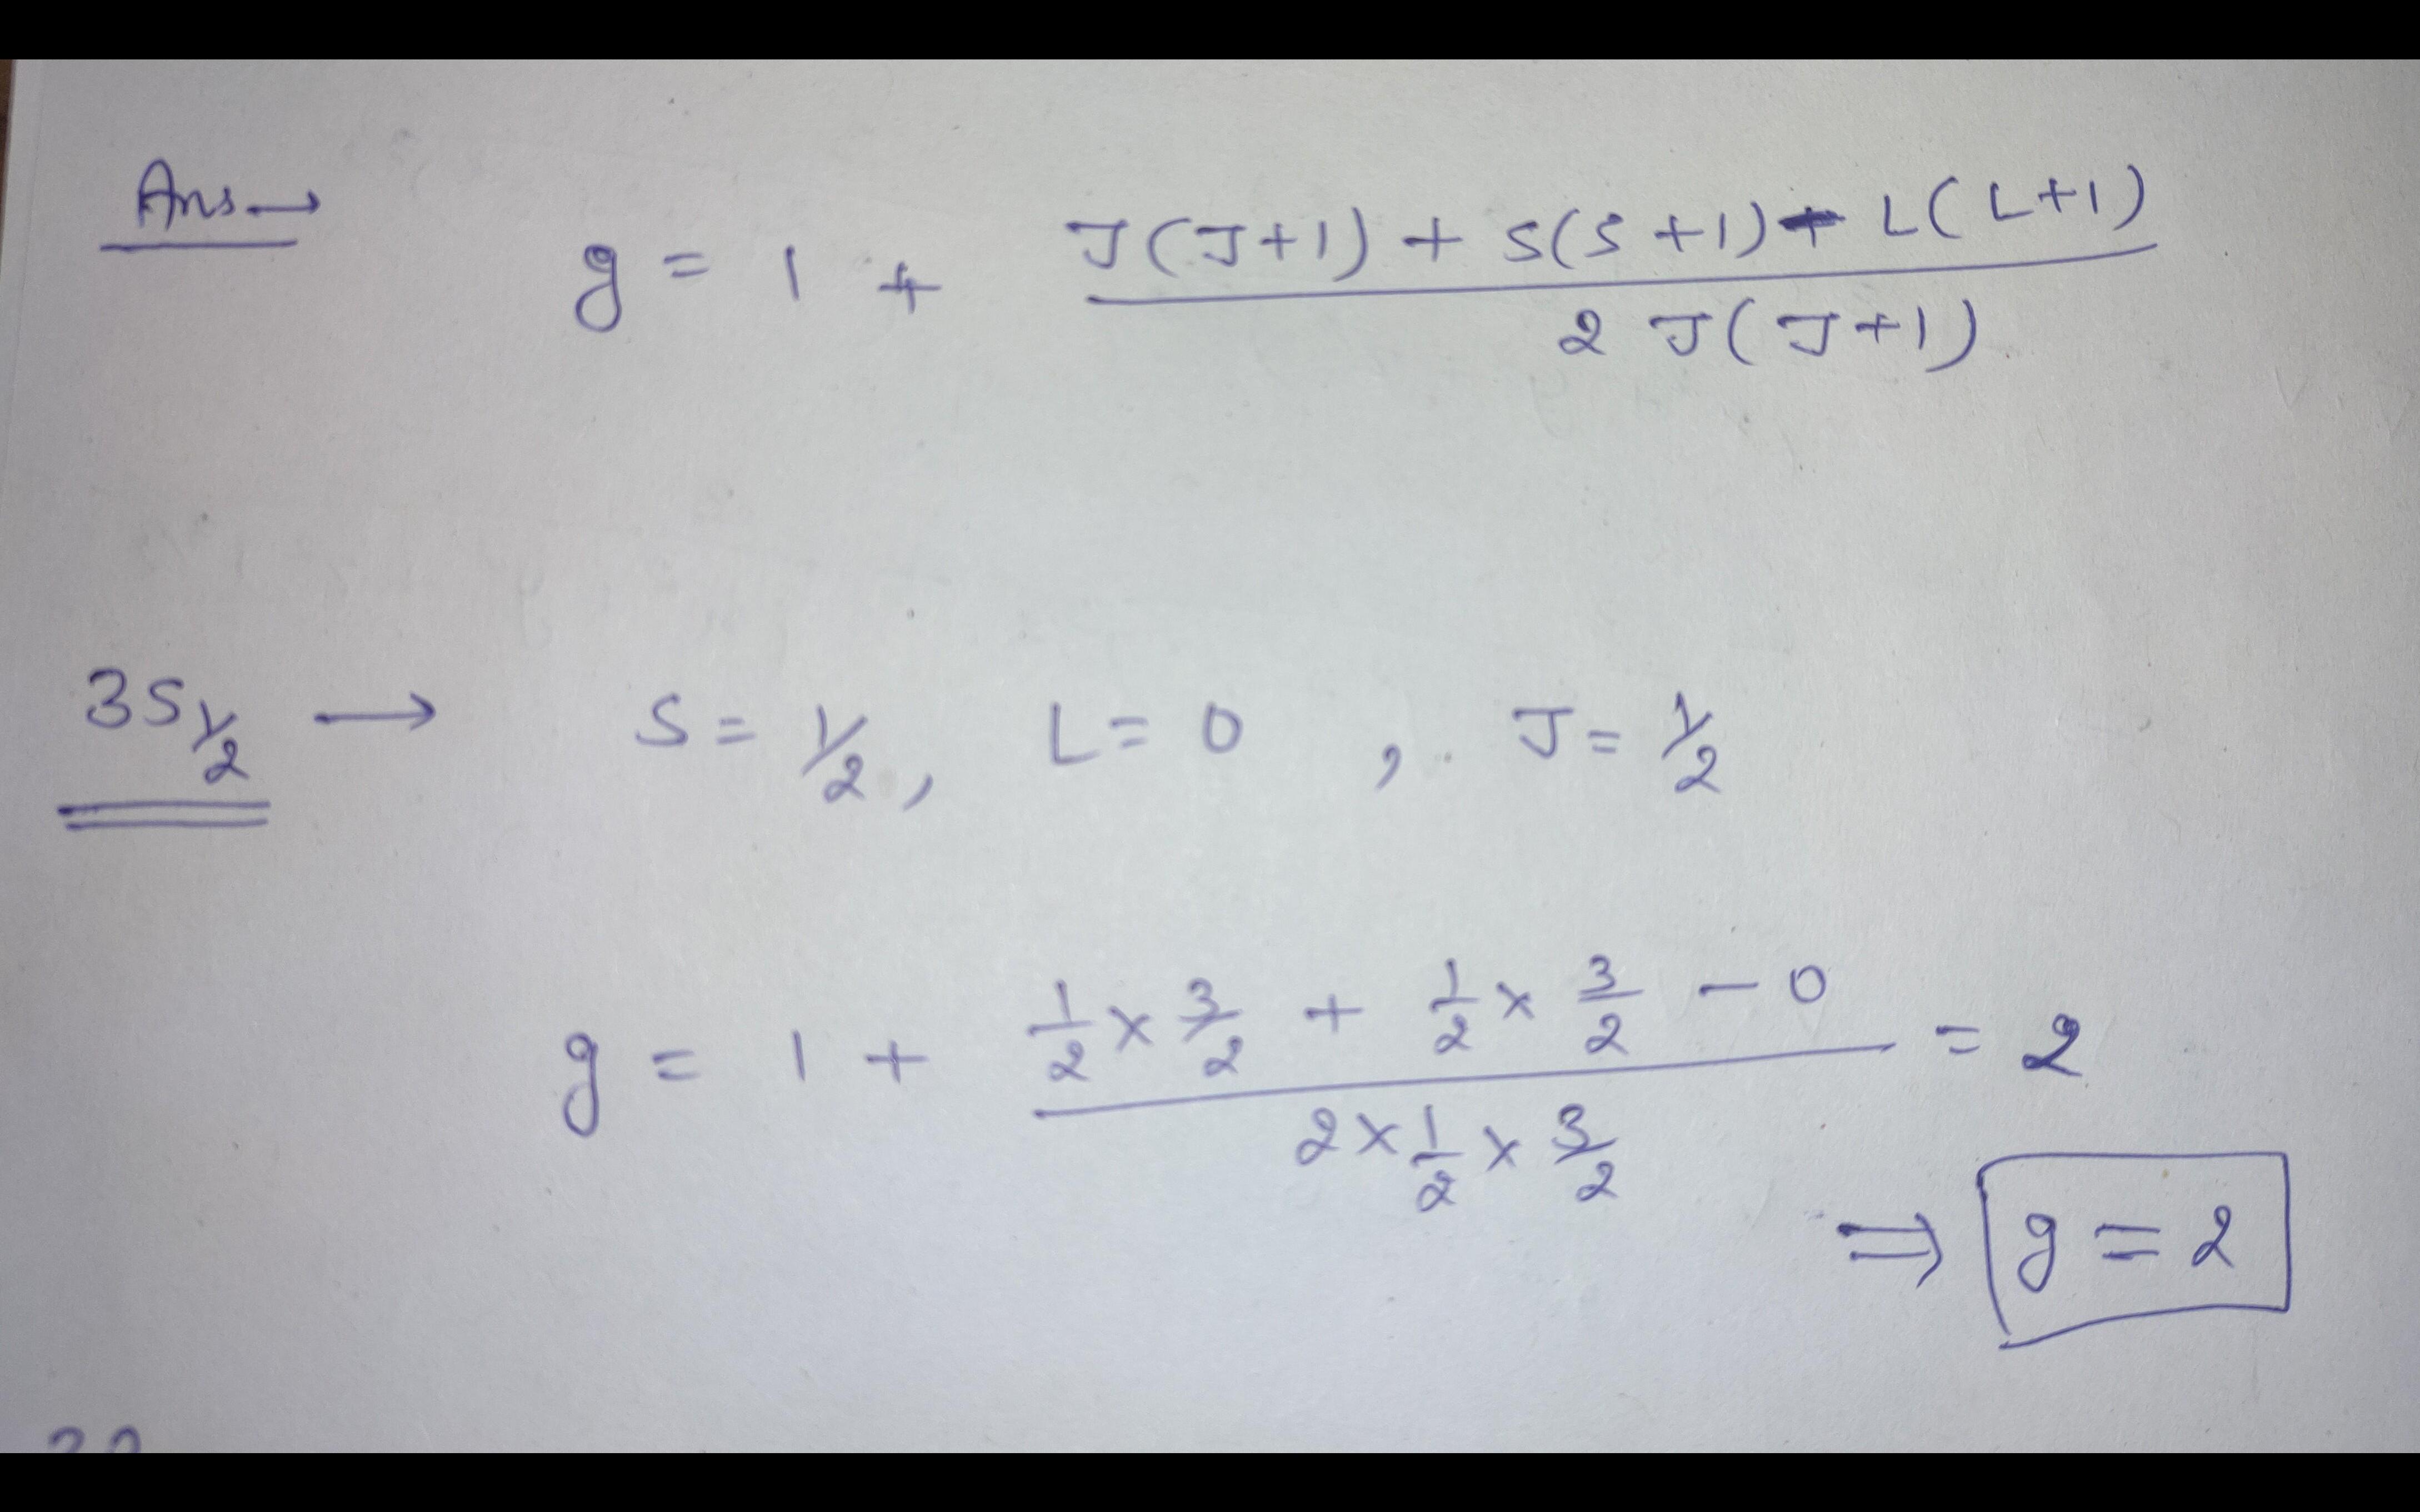 Ans→ g = 1 + J(J+1) + S(S+1) - L(L+1) / 2 J(J+1)
3S1/2 → S = 1/2, L = 0, J = 1/2
g = 1 + 1/2 × 3/2 + 1/2 × 3/2 - 0 / 2 × 1/2 × 3/2 = 2
⇒ g = 2